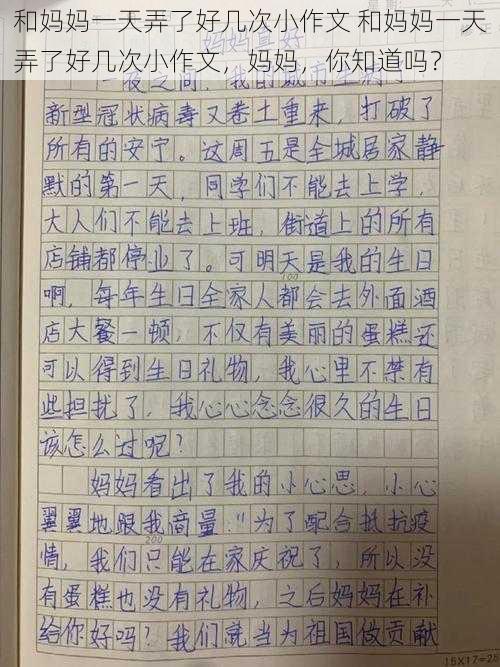 和妈妈一天弄了好几次小作文 和妈妈一天
弄了好几次小作文，妈妈，你知道吗？
妈妈真好
一夜之间，我的城市生病了
新型冠状病毒又卷土重来，打破了
所有的安宁。这周五是全城居家静
默的第一天，同学们不能去上学，
大人们不能去上班，街道上的所有
店铺都停业了。可明天是我的生日
100
啊，每年生日全家人都会去外面酒
店大餐一顿，不仅有美丽的蛋糕还
可以得到生日礼物，我心里不禁有
些担扰了，我心心念念很久的生日
该怎么过呢？
妈妈看出了我的小心思，小心
翼翼地跟我商量："为了配合抵抗疫
200
情，我们只能在家庆祝了，所以没
有蛋糕也没有礼物，之后妈妈在补
给你好吗？我们就当为祖国做贡献